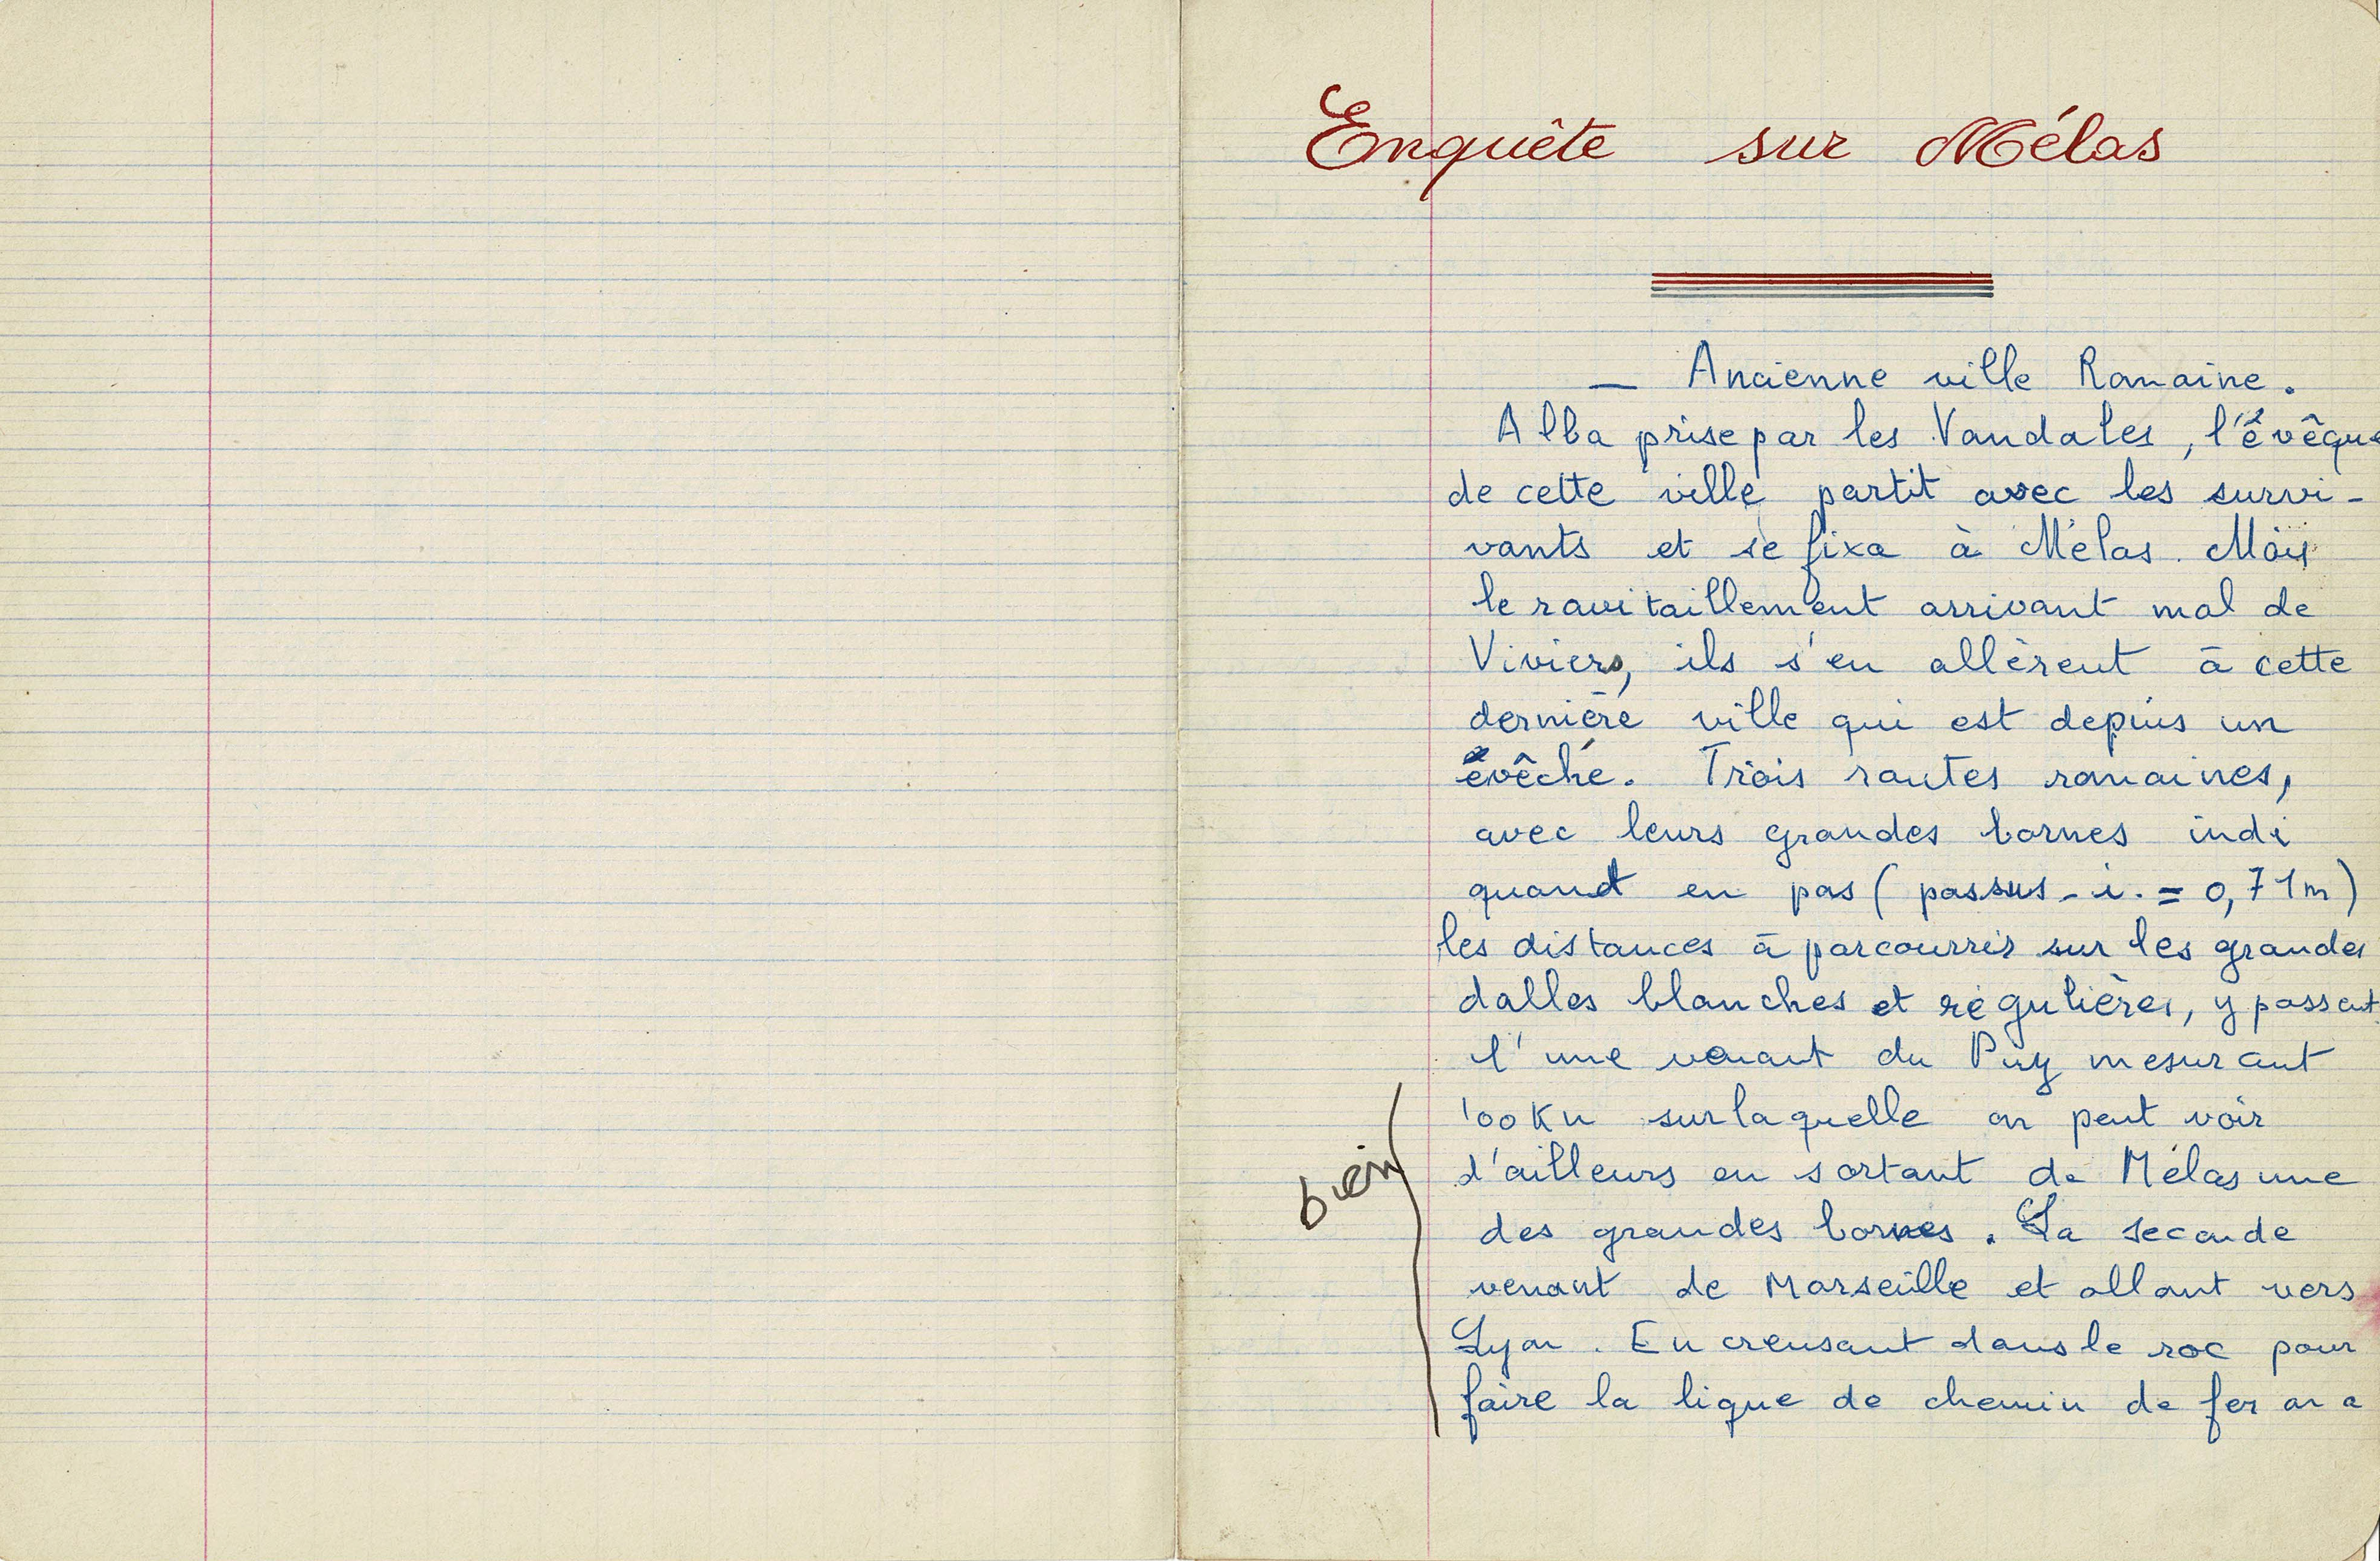 Enquête sur Mélas
— Ancienne ville Romaine.
Alba prise par les Vandales, l'évêque
de cette ville partit avec les survi-
vants et se fixa à Mélas. Mais
le ravitaillement arrivant mal de
Viviers, ils s'en allèrent à cette
dernière ville qui est depuis un
évêché. Trois routes romaines,
avec leurs grandes bornes indi
quant en pas ( passus - i. = 0,71m)
les distances à parcourrir sur les grandes
dalles blanches et régulières, y passent
l'une venant du Puy mesurant
100 Km sur laquelle on peut voir
d'ailleurs en sortant de Mélas une
bien
des grandes bornes. La seconde
venant de Marseille et allant vers
Lyon. En creusant dans le roc pour
faire la ligne de chemin de fer on a